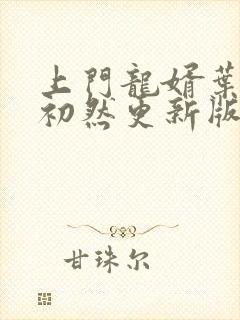 上門龍婿葉
初然更新版
甘珠尔